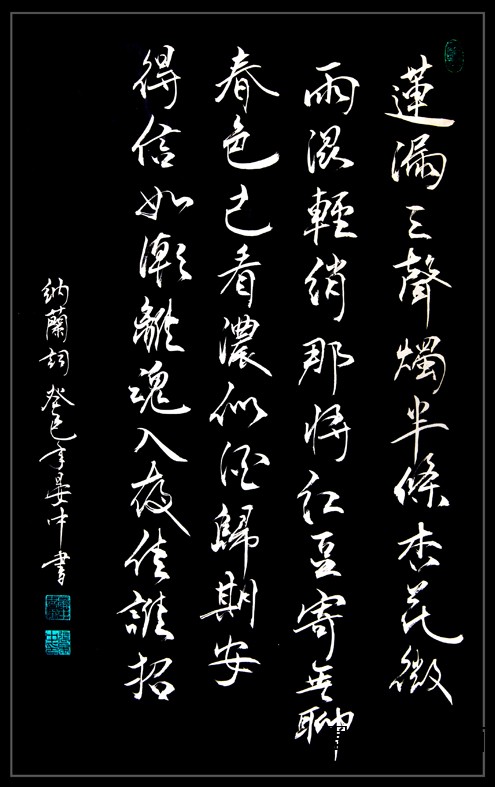 蓮漏三聲燭半條杏花微
雨濕輕綃那將紅豆寄無聊
春色已看濃似酒歸期安
得信如潮離魂入夜倩誰招
納蘭詞 癸巳年晏中書